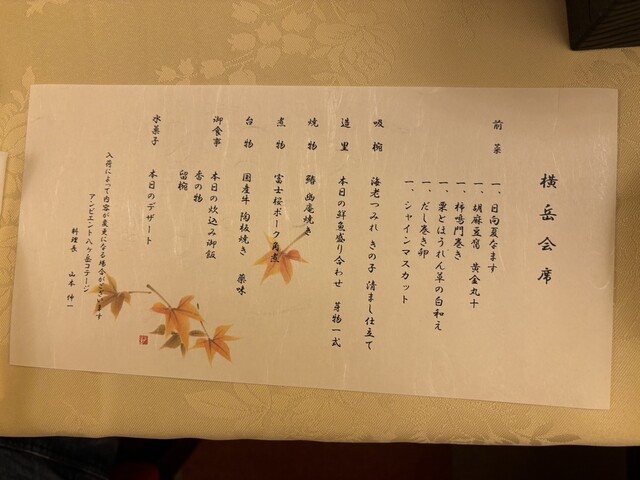 横岳会席
前菜 一、日向夏なます
一、胡麻豆腐 黄金丸十
一、柿鳴門巻き
一、栗とほうれん草の白和え
一、だし巻き卵
一、シャインマスカット
吸椀 海老つみれ きの子 清まし仕立て
造里 本日の鮮魚盛り合わせ 芽物一式
焼物 鰆 幽庵焼き
煮物 富士桜ポーク角煮
台物 国産牛 陶板焼き 薬味
御食事 本日の炊込み御飯
香の物
留椀
水菓子 本日のデザート
入荷によって内容が変更になる場合がございます
アンビエント八ヶ岳コテージ
料理長 山本 伸一